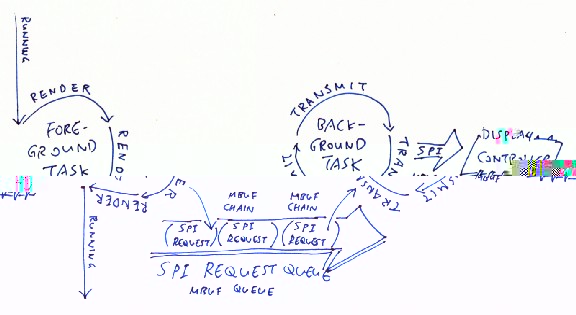 RUNNING
RENDER
FORE-
GROUND
TASK
RENDE
RENDER
RUNNING
TRANSMIT
BACK-
GROUND
TASK
TRAN
SPI
DISPLAY
MBUF
CHAIN
MBUF
CHAIN
SPI
REQUEST
SPI
REQUEST
SPI
REQUEST
SPI REQUEST QUEUE
MBUF QUEUE